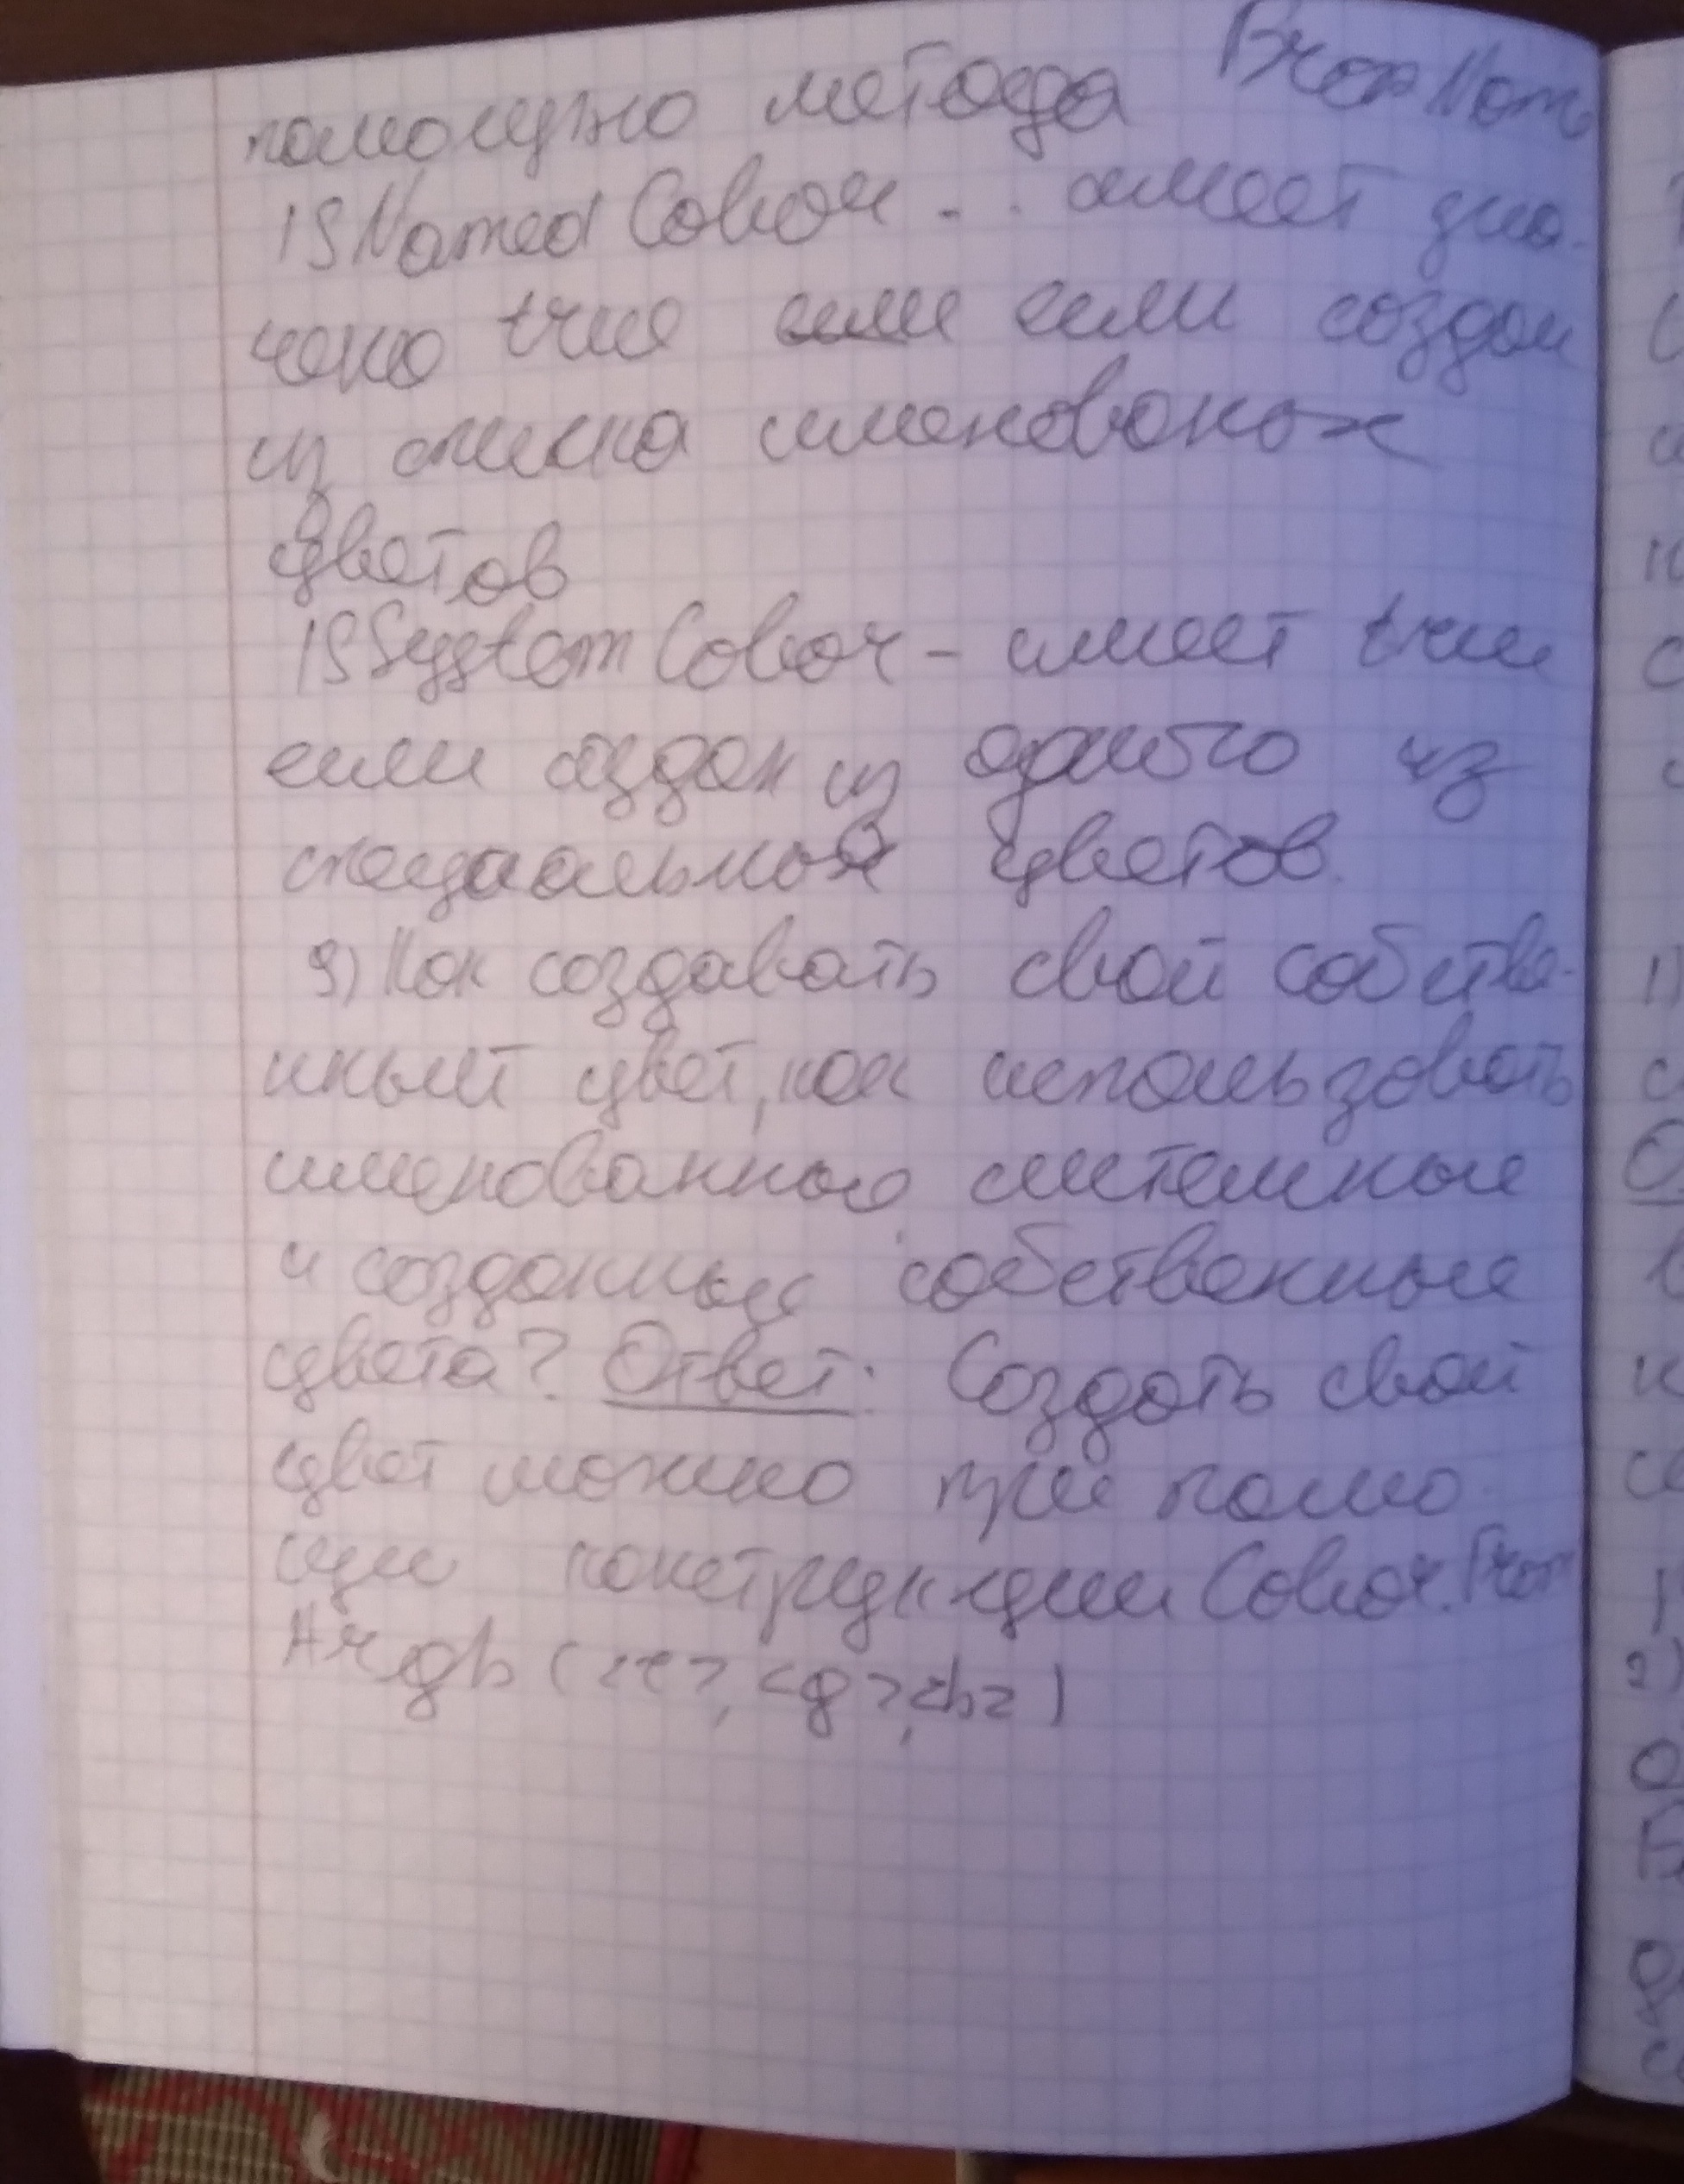 помощью метода FromName
ISNamed Color - имеет зна-
чено true если если создан
из списка именованых
цветов
ISSystem Color - имеет true
если создан из одного из
специальных цветов.
9) Как создавать свой собстве-
нный цвет, как использовать
именованные системные
и созданные собственные
цвета? Ответ: Создать свой
цвет можно при помо-
щи конструкции Color.From
Argb (<r>, <g>, <b>)